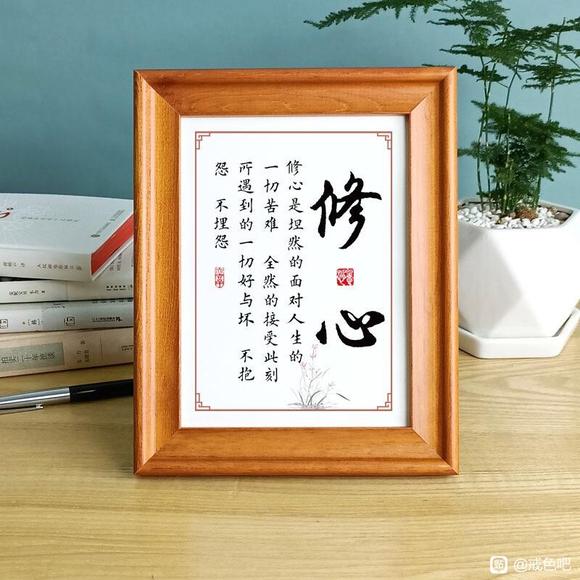 修心
修心是坦然的面对人生的
一切苦难 全然的接受此刻
所遇到的一切好与坏 不抱
怨 不埋怨
@戒色吧